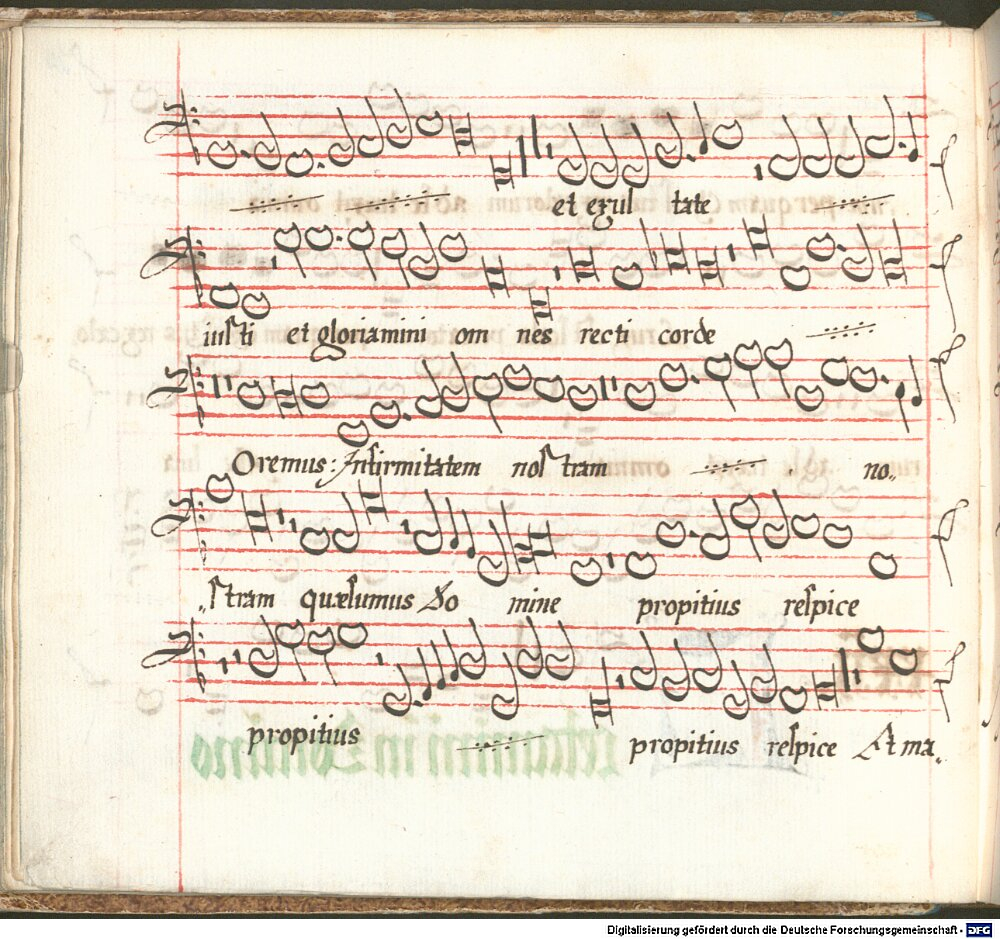 et exul tate
iusti et gloriamini om nes recti corde
Oremus: Infirmitatem nostram no„
„stram quæsumus Do mine propitius respice
propitius propitius respice At ma„
Digitalisierung gefördert durch die Deutsche Forschungsgemeinschaft - DFG